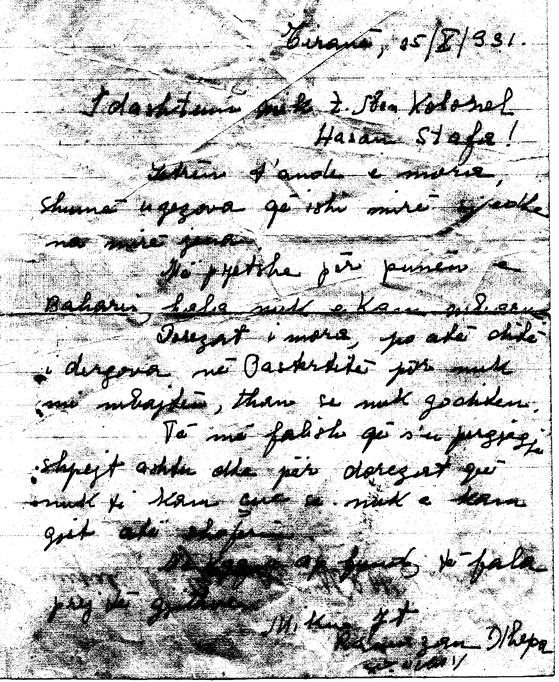 Tiranë, 25/X/931.
I dashtuni mik z. Nën Kolonel
Hasan Stafa!
Letrën t'ande e mora,
shumë u gëzova që ishi mirë edhe
na mirë jena.
Më pyetshe për punën e
Baharis, hala nuk e kam
Dorezat i mora, po atë ditë
i dërgova në Pastërtitë për nuk
mi mbajtën, than se nuk goditen.
Të më falish që s'u përgjegja
shpejt ashtu dhe për dorezat që
nuk ti kam çue se nuk e kam
gjet atë shoferin.
të fala
prej të gjithve.
Miku Jt
Ramazan Dhepa